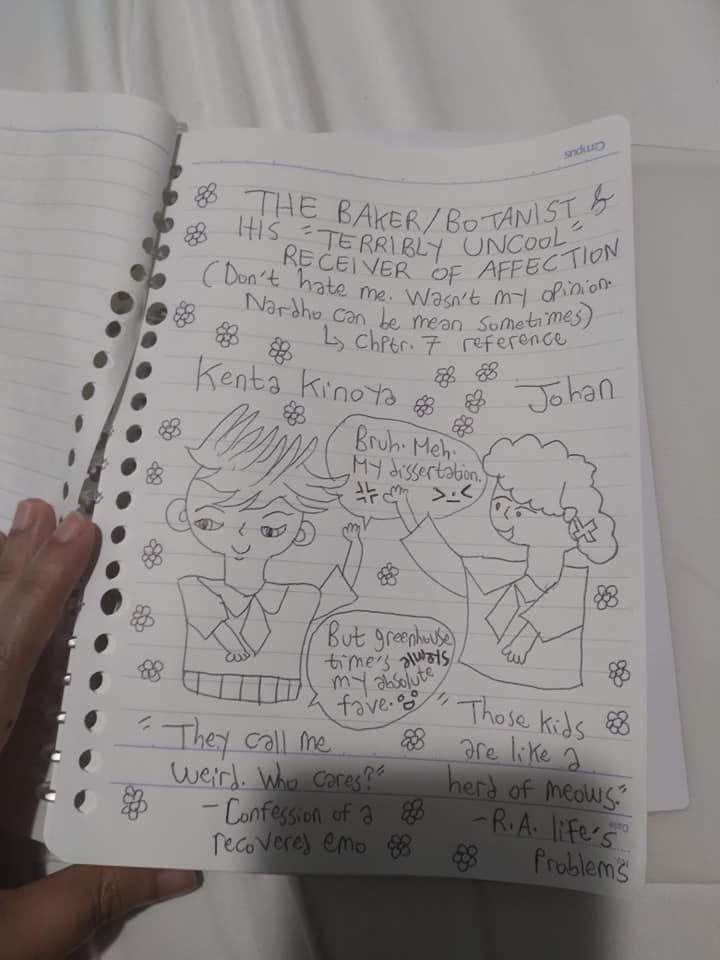 Campus
THE BAKER/BOTANIST &
HIS "TERRIBLY UNCOOL"
RECEIVER OF AFFECTION
(Don't hate me. Wasn't my opinion.
Nardho can be mean sometimes)
↳ Chptr. 7 reference
Kenta Kinoya
Johan
Bruh. Meh.
My dissertation.
>.<
But greenhouse
time's always
my absolute
fave.
"They call me
weird. Who cares?"
- Confession of a
recovered emo
"Those kids
are like a
herd of meows."
- R.A. life's
Problems
Date
No.